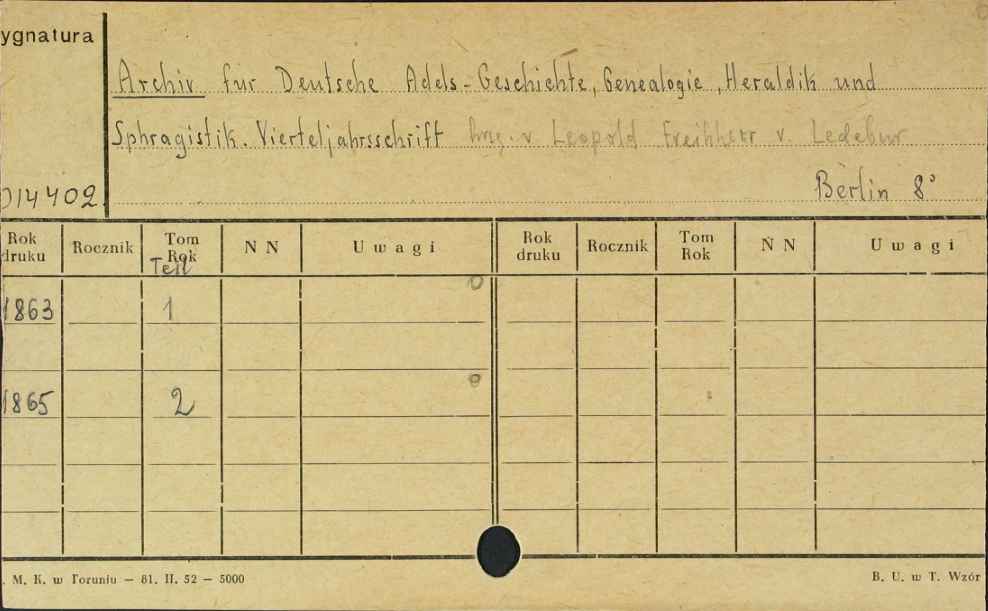 ygnatura
Archiv für Deutsche Adels-Geschichte, Genealogie, Heraldik und
Sphragistik. Vierteljahrsschrift hrg. v Leopold Freihherr v. Ledebur
014402
Berlin 8°
Rok druku Rocznik Tom Rok N N Uwagi Rok druku Rocznik Tom Rok N N Uwagi
Teil
1863 1
1865 2
. M. K. w Toruniu — 81. II. 52 — 5000
B. U. w T. Wzór